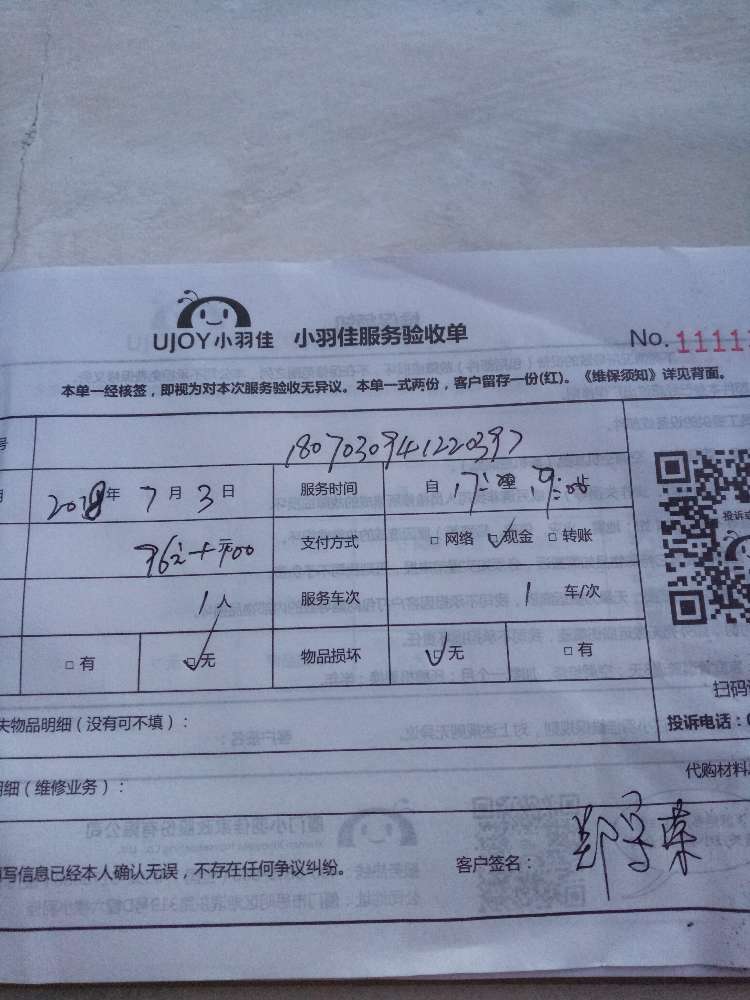 UJOY小羽佳 小羽佳服务验收单 No.1111
本单一经核签，即视为对本次服务验收无异议。本单一式两份，客户留存一份(红)。《维保须知》详见背面。
号 1807030941220397
2018年7月3日 服务时间 自 17: 19:
支付方式 □ 网络 ☑现金 □ 转账
投诉或
1人 服务车次 1 车/次
□ 有 ☑无 物品损坏 ☑无 □ 有
扫码
失物品明细（没有可不填）： 投诉电话：0
明细（维修业务）： 代购材料
写信息已经本人确认无误，不存在任何争议纠纷。 客户签名：郑 荣